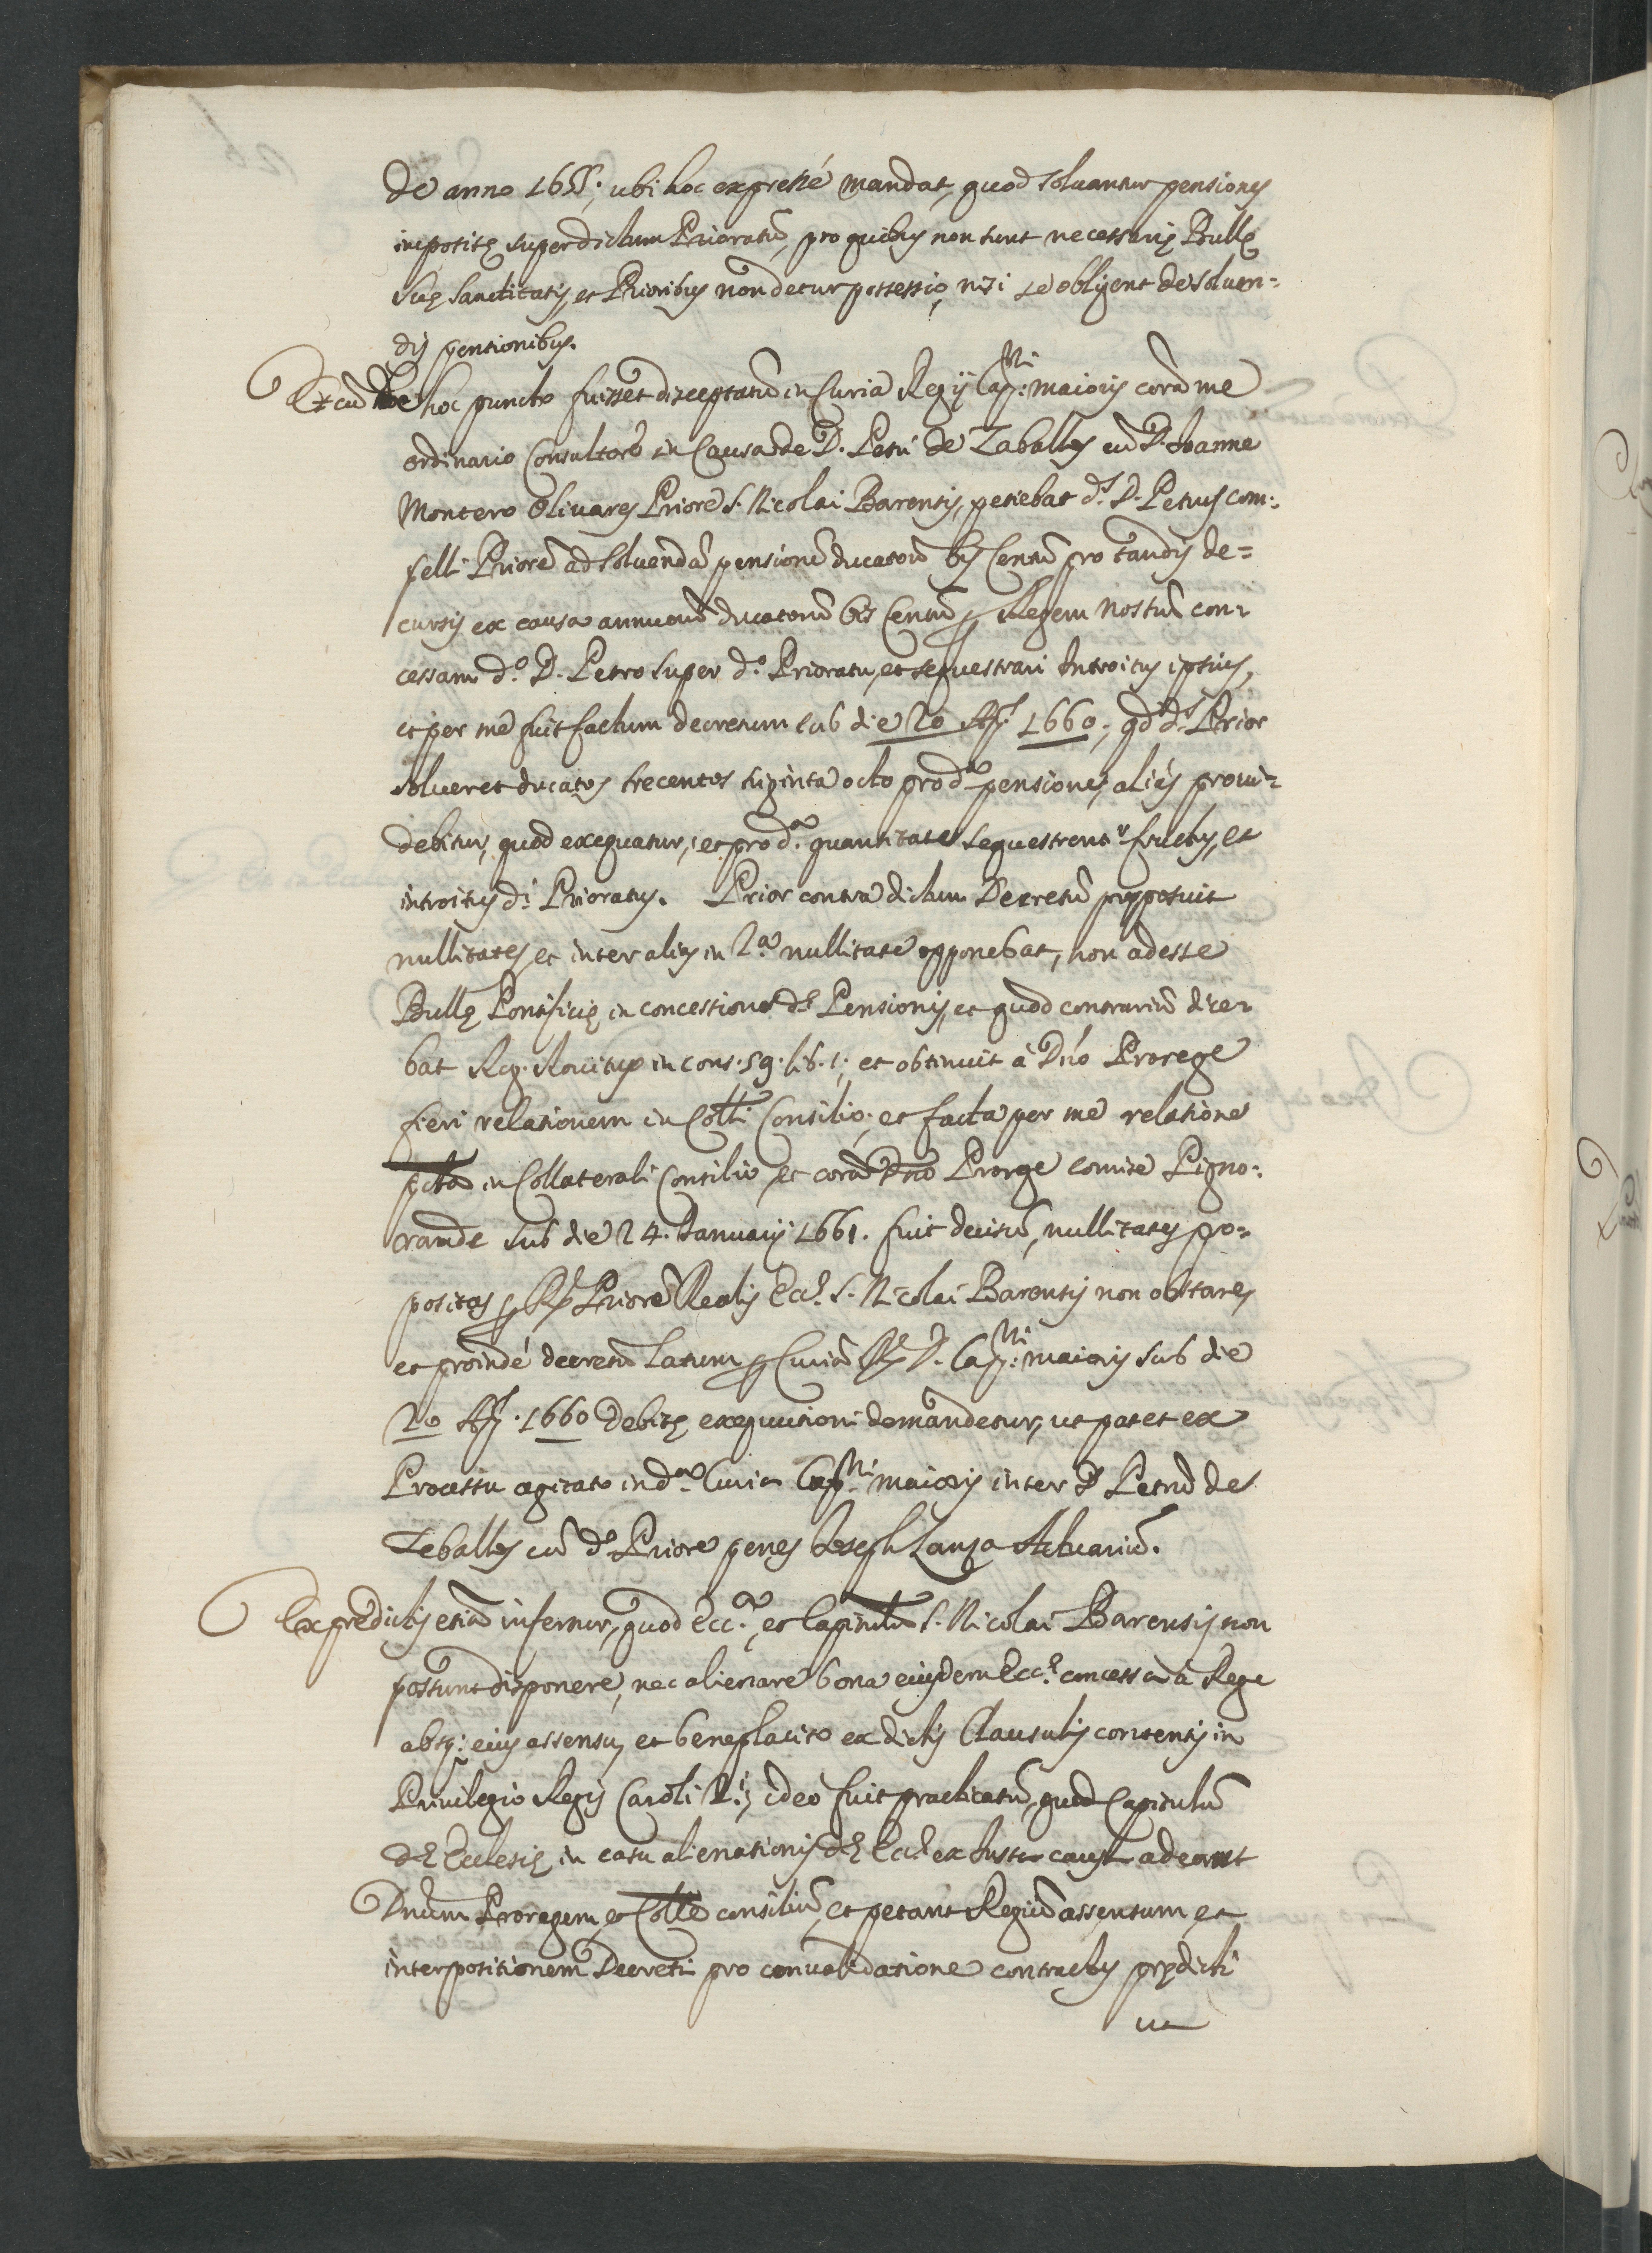 de anno 1655; ubi hoc expressé mandat, quod solvantur pensiones
impositę super dictum Prioratũ, pro quibus non sunt necessarię Bullę
suę Sanctitatis, et Prioribus non detur possessio, nisi se obligent de solven=
dis pensionibus.
Et cũ de hoc puncto fuisset disceptatũ in Curia Regij Capni: maioris corã me
ordinario Consultore in Causa de D. Petri de Zaballos cũ D. Joanne
Montero Olivares Priore S. Nicolai Barensis, petebat ds. D. Petrus com=
pelli Priorẽ ad solvendã pensionẽ ducatorũ bis Centũ pro tandis de=
cursis ex causa annuorũ ducatorũ bis Centũ ꝑ Regem Nostrũ con=
cessam do. D. Petro super do. Prioratu, et sequestrari Introitus ipsius,
et per me fuit factum decretum sub die 20 1660; qd ds. Prior
solveret ducatos trecentos triginta octo pro da. pensione, aliàs provi=
debitur, quod exequatur, et pro da. quantitate sequestrentr. fructus, et
introitus di. Prioratus. Prior contra dictum Decretũ proposuit
nullitates, et inter alias in 2a. nullitate opponebat, non adesse
Bullę Pontificię in concessione dę Pensionis, et quod contrariũ dice=
bat Reg. Rovitus in cons. 59. lib. 1; et obtinuit à Dno Prorege
fieri relationem in Colli Consilio; et facta per me relatione
in Collaterali Consilio, et corã Dno Prorge Comite Pigno=
randę sub die 24. Januarij 1661. fuit decisũ, nullitates pro=
positas ꝑ Priorẽ Realis Eccę. S. Nicolai Barensis non obstare,
et proindé decretũ latum ꝑ Curiã D. Capni: maioris sub die
20 1660 debitę exequutioni demandetur, ut patet ex
Processu agitato in da. Curia Capni. maioris inter D. Petrũ de
Zeballos cũ do. Priore penes Joseph Lanza Actuariũ.
Ex prędictis etiã infertur, quod Ecca., et Capitulũ S. Nicolai Barensis non
possunt disponere, nec alienare bona eiusdem Eccę. concessa à Rege
absq: eius assensu, et beneplacito ex dictis Clausulis contentis in
Privilegio Regis Caroli 2i; ideò fuit practicatũ, quod Capitulũ
dę Ecclesię in casu alienationis dę Eccę ex iusta causa adeunt
Dnum Proregem, et Colle consiliũ, et petant Regiũ assensum, et
interpositionem Decreti pro convalidatione contractus prędicti